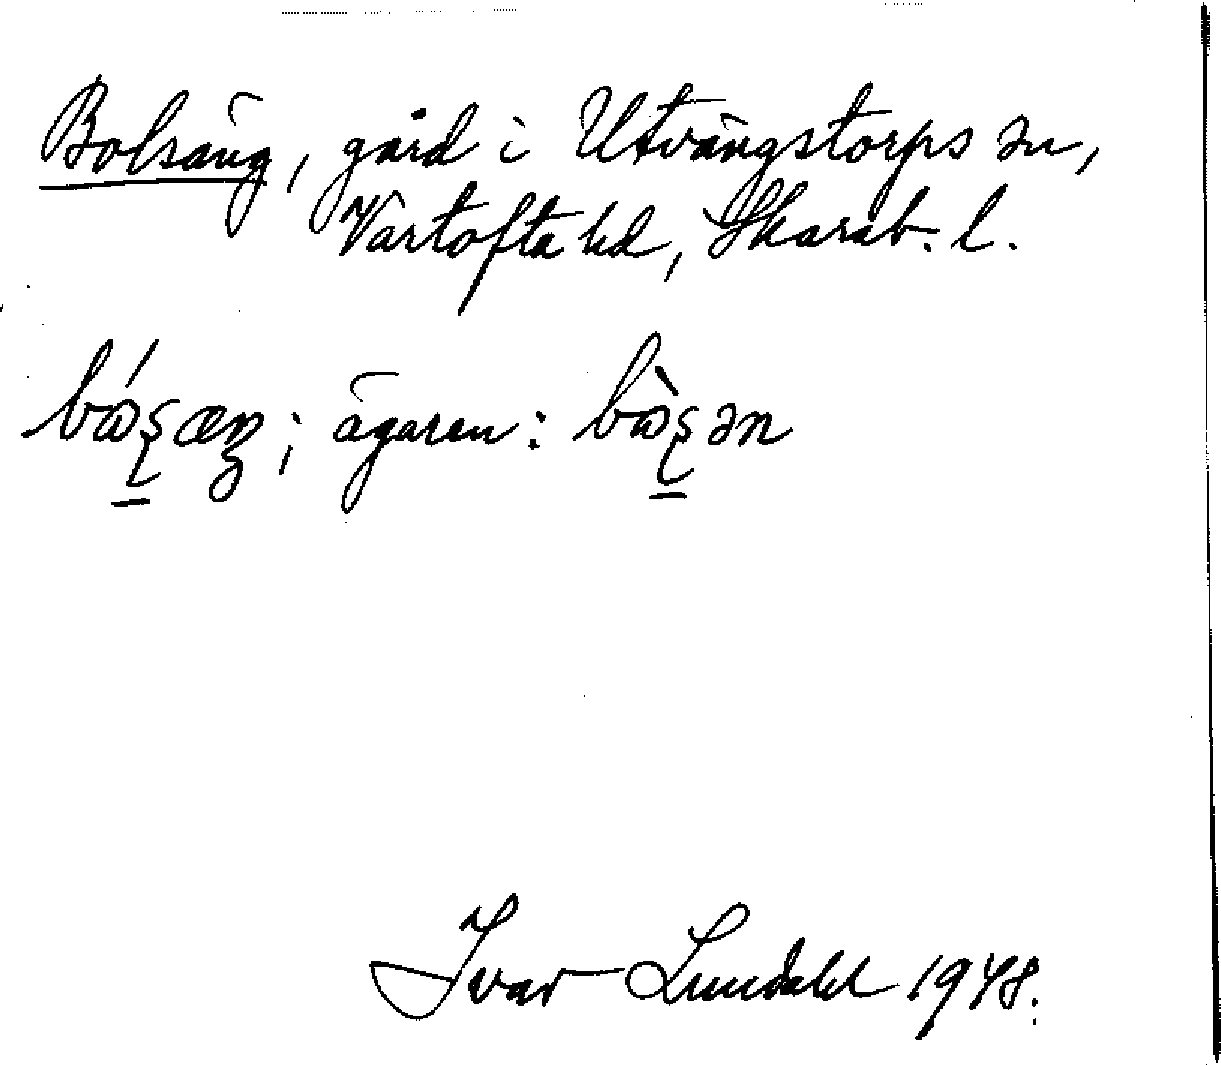 Bolsäng, gård i Utvängstorps sn,
Vartofta hd, Skarab. l.
ägaren:
Ivar Lundahl 1948.